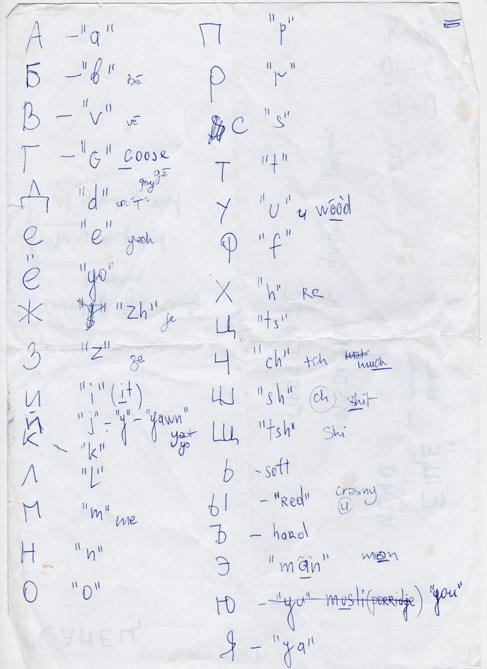 А - "a"
Б - "b" bē
В - "v" vē
Г - "G" Goose
Д "d"
е "e" yeah
ё "yo"
Ж "Zh" je
З "Z" ze
И "i" (it)
Й "j" - "y" - "yawn" yo
К - "k"
Л "L"
М "m" me
Н "n"
О "O"
П "p"
Р "r"
С "s"
Т "t"
У "U" u wood
Ф "f"
Х "h"
Ц "ts"
Ч "ch" tch much
Ш "sh" ch shit
Щ "tsh" Shi
Ь - soft
Ы - "Red" crasny u
Ъ - hard
Э "man" man
Ю - "yu" musli (porridge) "you"
Я - "ya"